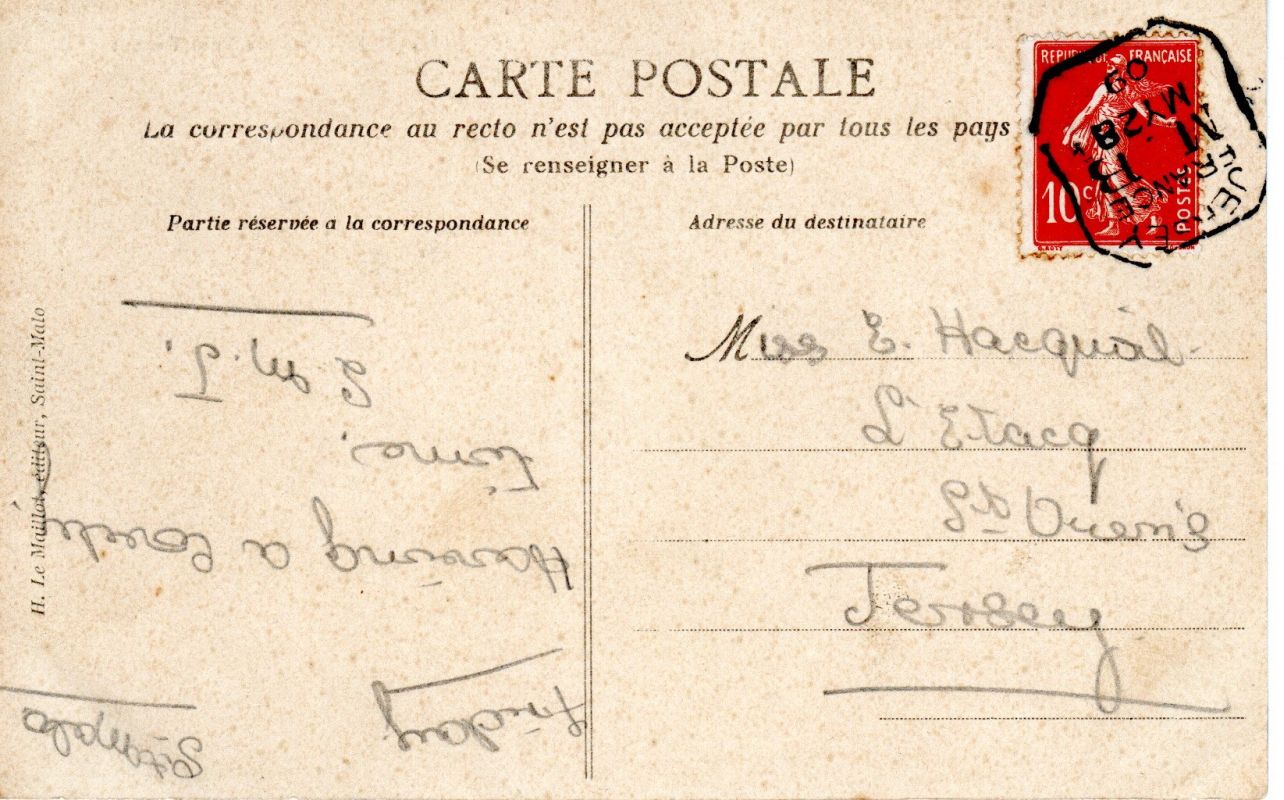 CARTE POSTALE
La correspondance au recto n'est pas acceptée par tous les pays
(Se renseigner à la Poste)
REPUBLIQUE FRANÇAISE
10c
POSTES
O. ROTY
JERSEY
FRANCE
MY 28
09
Partie réservée a la correspondance
Adresse du destinataire
H. Le Maillot, éditeur, Saint-Malo
Miss E. Hacquoil
L'Etacq
St Ouen's
Jersey
St Malo
Friday
Having a lovely
time.